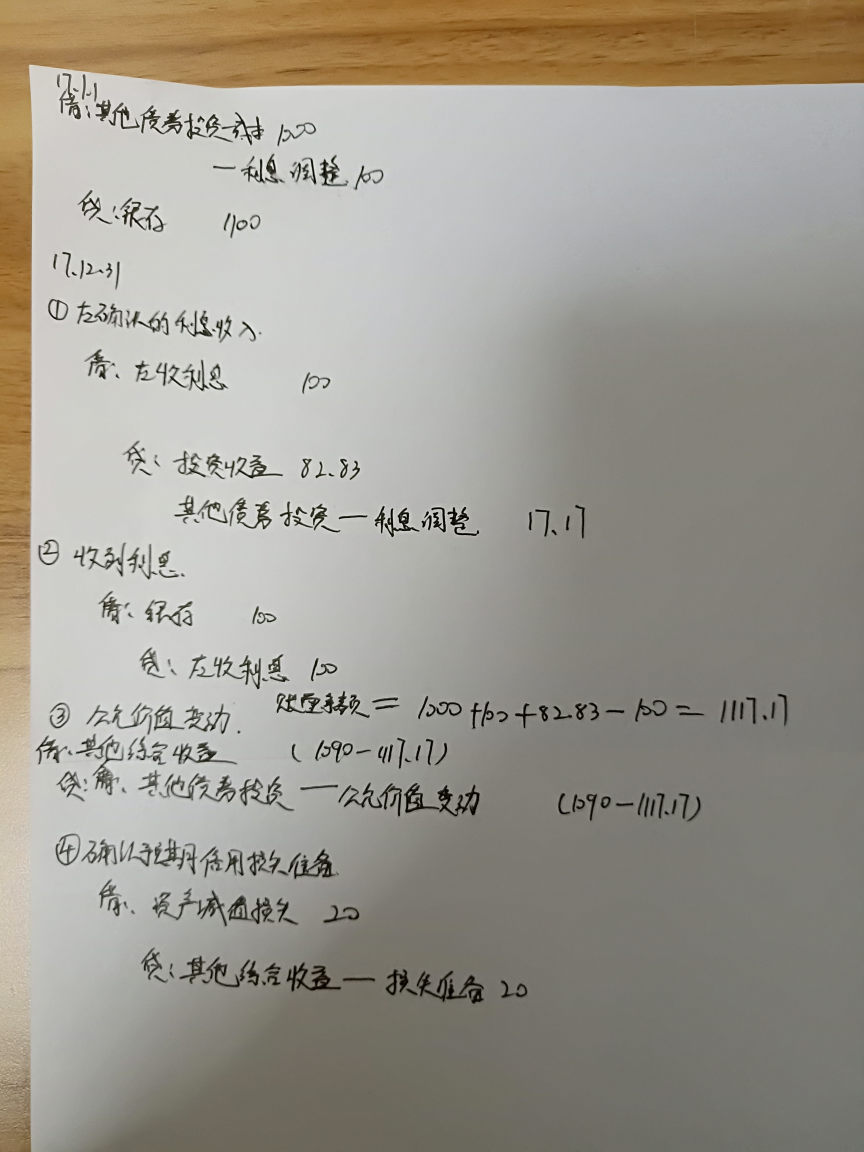 17.1.1
借:其他债券投资—成本 1000
—利息调整 100
贷:银存 1100
17.12.31
① 应确认的利息收入.
借:应收利息 100
贷:投资收益 82.83
其他债券投资—利息调整 17.17
② 收到利息.
借:银存 100
贷:应收利息 100
③ 公允价值变动. 账面余额=1000+100+82.83-100=1117.17
借:其他综合收益 (1090-1117.17)
贷:其他债券投资—公允价值变动 (1090-1117.17)
④确认预期信用损失准备
借:资产减值损失 20
贷:其他综合收益—损失准备 20